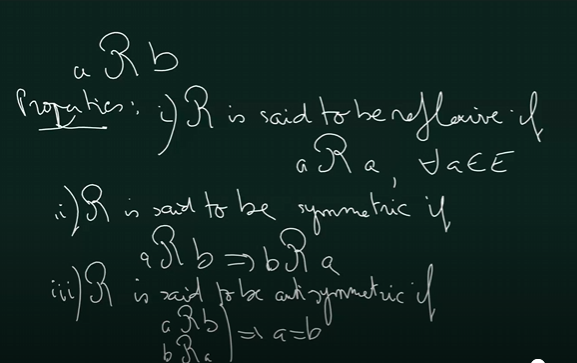 a R b
Properties: i) R is said to be reflexive if
a R a, ∀a∈E
ii) R is said to be symmetric if
a R b ⇒ b R a
iii) R is said to be antisymmetric if
a R b
b R a } ⇒ a=b